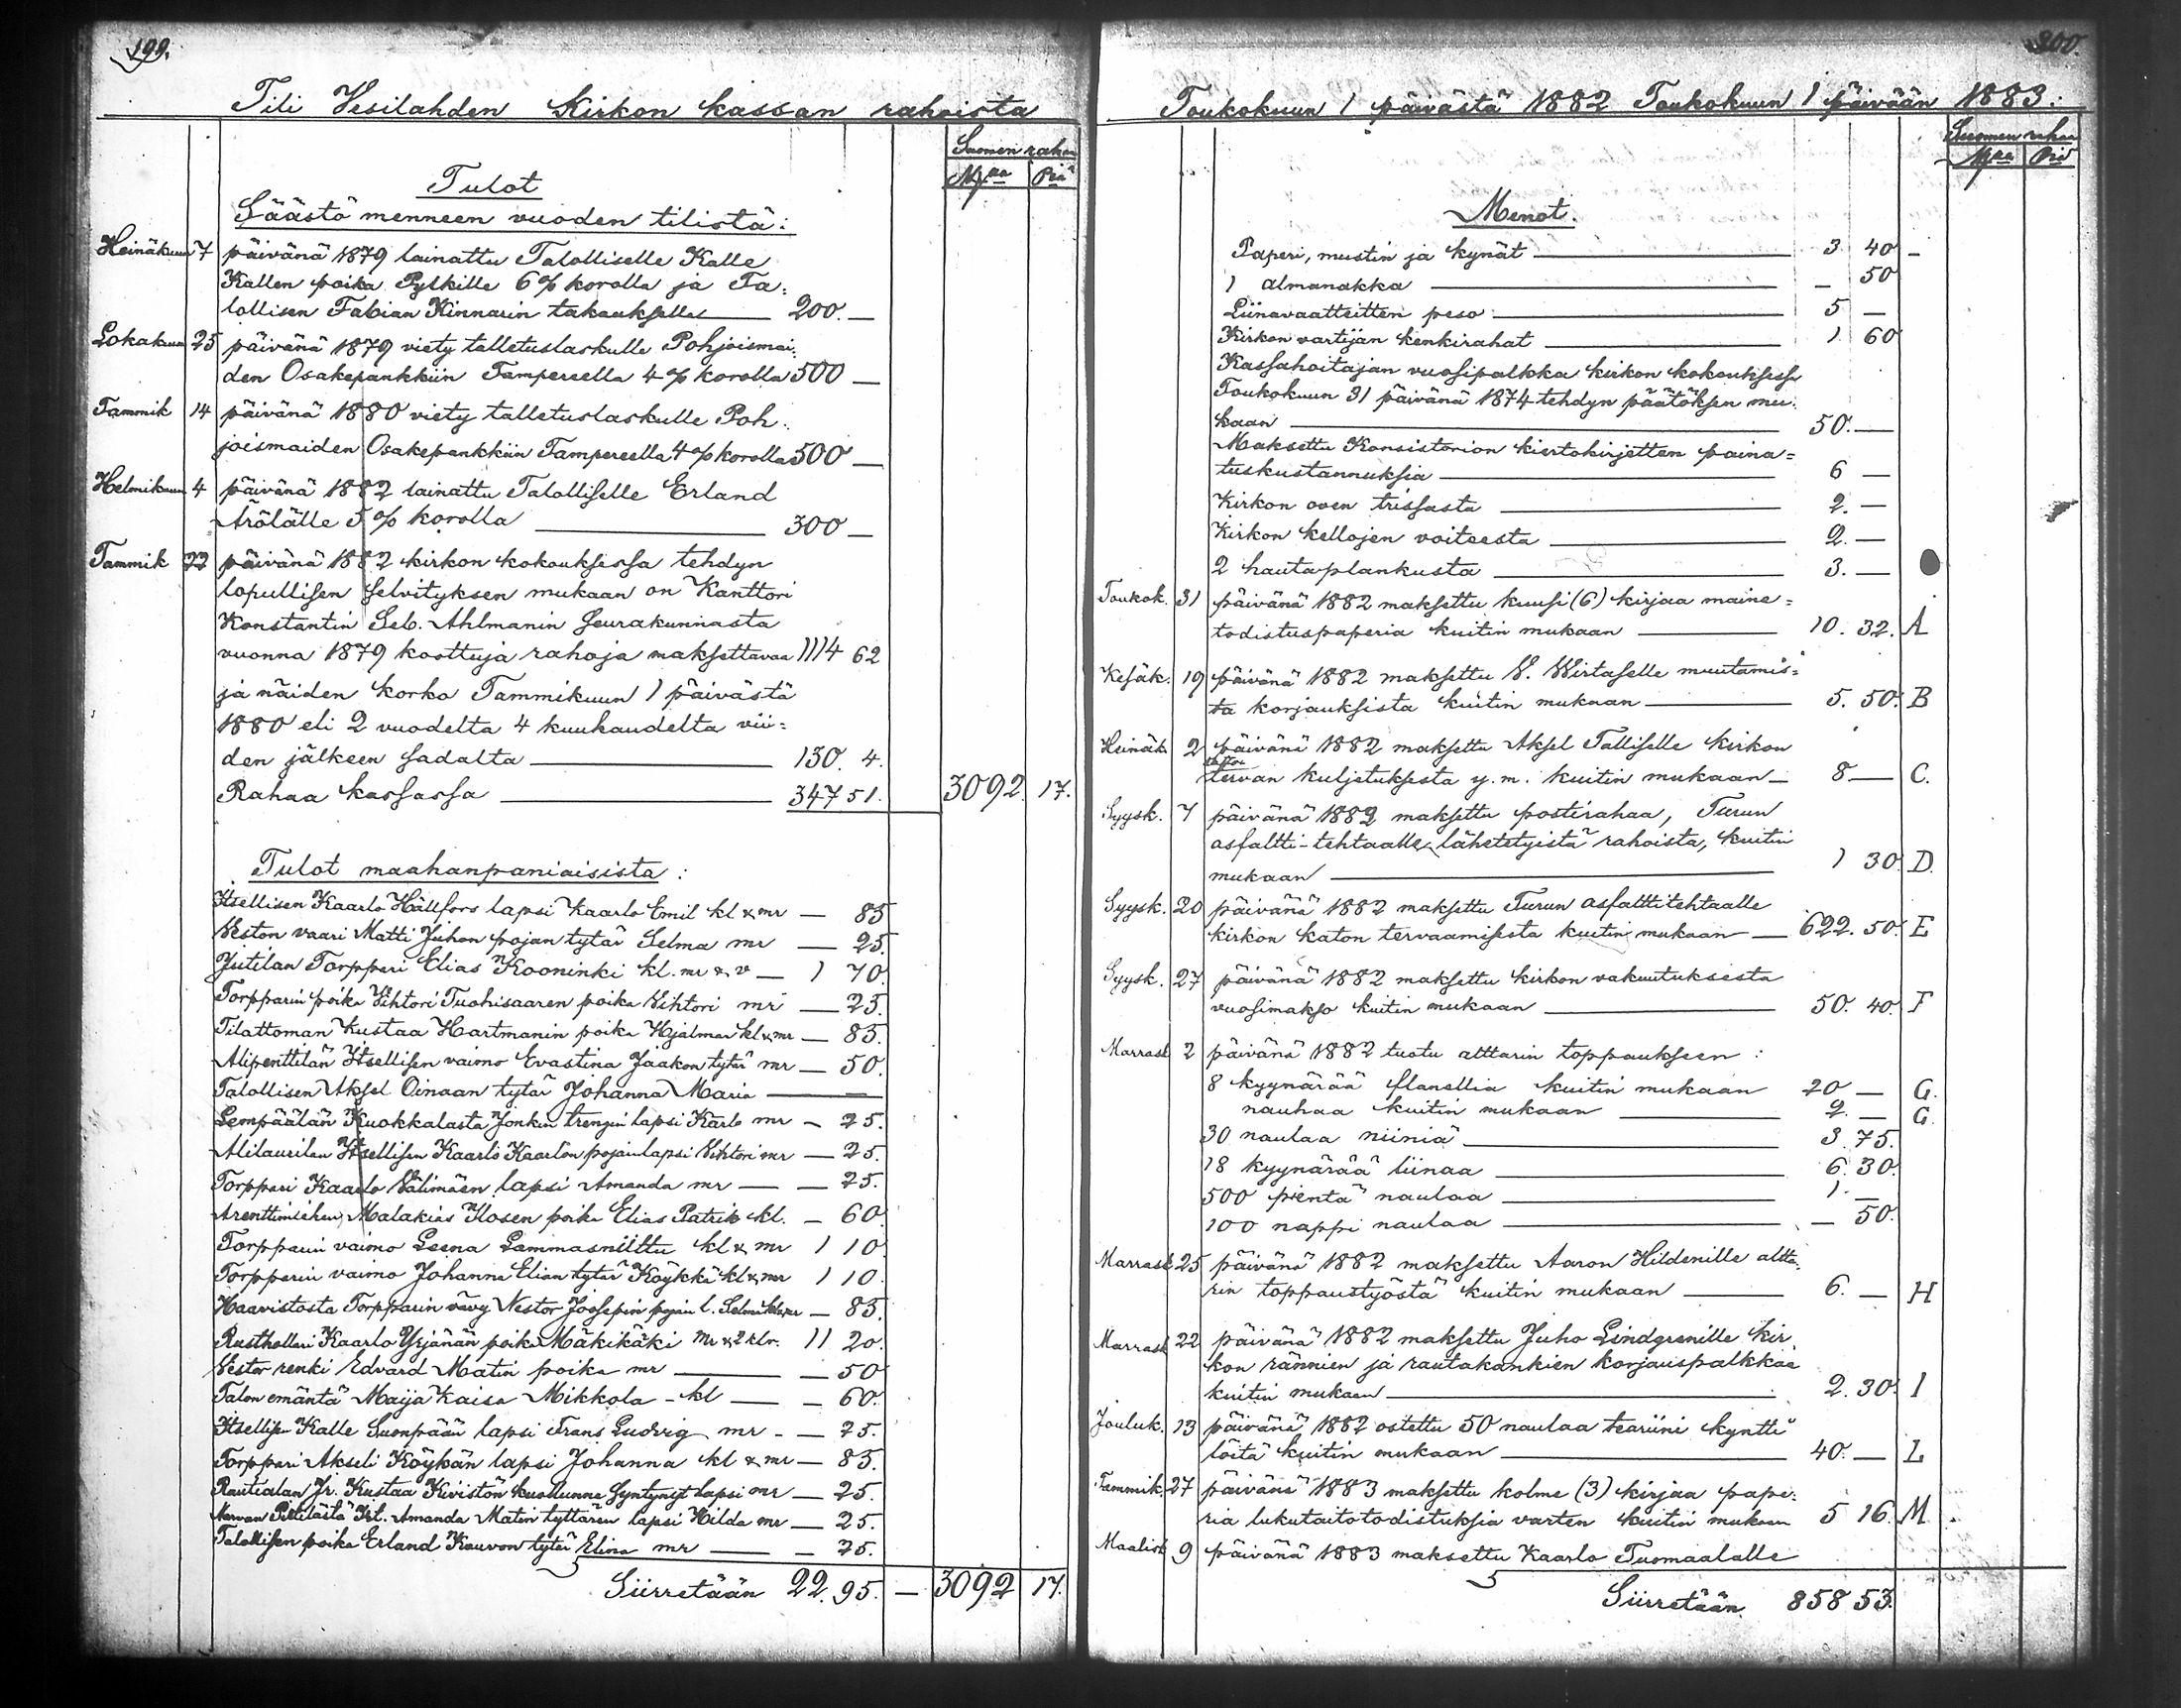 199.
Tili Vesilahden Kirkon kassan rahoista
Suomen rahaa
Tulot
Mkaa Piä
Säästö menneen vuoden tilistä:
Heinäkuun 7 päivänä 1879 lainattu Talolliselle Kalle
Kallen poika Pylkille 6 % korolla ja Ta-
lollisen Fabian Kinnarin takauksella — 200. —
Lokakuun 25 päivänä 1879 viety talletuslaskulle Pohjoismai-
den Osakepankkiin Tampereella 4 % korolla 500 —
Tammik 14 päivänä 1880 viety talletuslaskulle Poh-
joismaiden Osakepankkiin Tampereella 4 % korolla 500 —
Helmikuun 4 päivänä 1882 lainattu Talolliselle Erland
Arölälle 5 % korolla — 300 —
Tammik 22 päivänä 1882 kirkon kokouksessa tehdyn
lopullisen selvityksen mukaan on Kanttori
Konstantin Seb. Ahlmanin seurakunnasta
vuonna 1879 koottuja rahoja maksettavaa 1114 62
ja näiden korko Tammikuun 1 päivästä
1880 eli 2 vuodelta 4 kuukaudelta vii-
den jälkeen sadalta — 130. 4.
Rahaa kassassa — 347 51. 3092. 17.
Tulot maahanpaniaisista:
Itsellisen Kaarlo Hällfors lapsi Kaarlo Emil kl & mr — 85
Veston vaari Matti Juhon pojan tytär Selma mr — 25.
Yitilan Torppari Elias Kooninki kl. mr & v — 1 70.
Torpparin poika Vihtori Tuohisaaren poika Vihtori mr — 25.
Tilattoman Kustaa Hartmanin poika Hjalmar kl & mr — 85.
Alipenttilän Itsellisen vaimo Evastina Jaakon tytär mr — 50.
Talollisen Aksel Oinaan tytär Johanna Maria —
Lempäälän Kuokkalasta Jonkin trengin lapsi Karlo mr — 25.
Alilaurilan Itsellisen Kaarlo Kaarlon pojan lapsi Vihtori mr — 25.
Torppari Kaarlo Välimäen lapsi Amanda mr — — 25.
Arenttimiehen Malakias Ilosen poika Elias Patrik kl. — 60.
Torpparin vaimo Leena Lammasniittu kl & mr 1 10.
Torpparin vaimo Johanna Elian tytär Köykkä kl & mr 1 10.
Haavistosta Torpparin vävy Nestor Joosepin pojan l. Selmi kl & mr — 85.
Rusthollari Kaarlo Yrjänän poika Mäkikäki mr & 2 klv. 11 20.
Vestor renki Edvard Matin poika mr — — 50
Talon emäntä Maija Kaisa Mikkola - kl — — 60.
Itsellisen Kalle Suonpään lapsi Frans Ludvig mr - — 25.
Torppari Akseli Köykän lapsi Johanna kl & mr — 85.
Rautialan Jr. Kustaa Kivistön kuolluna syntynyt lapsi mr — 25.
Narvan Pettilästä Itl. Amanda Matin tyttären lapsi Hilda mr — 25.
Talollisen poika Erland Kauvon tytär Elina mr — — 25.
Siirretään 22. 95. — 3092 17.
200.
Toukokuun 1 päivästä 1882 Toukokuun 1 päivään 1883.
Suomen rahaa
Mkaa Piä
Menot.
Paperi, mustin ja kynät — 3 40 -
1 almanakka — — 50
Liinavaatteitten peso — 5 —
Kirkon vartijan kenkirahat — 1 60
Kassahoitajan vuosipalkka kirkon kokouksessa
Toukokuun 31 päivänä 1874 tehdyn päätöksen mu-
kaan — 50. —
Maksettu Konsistorion kiertokirjetten paina-
tuskustannuksia — 6 —
Kirkon oven trissasta — 2. —
Kirkon kellojen voiteesta — 2. —
2 hautaplankusta — 3. —
Toukok. 31 päivänä 1882 maksettu kuusi (6) kirjaa maine-
todistuspaperia kuitin mukaan — 10. 32. A
Kesäk. 19 päivänä 1882 maksettu V. Wirtaselle muutamis-
ta korjauksista kuitin mukaan — 5. 50. B
Heinäk 2 päivänä 1882 maksettu Aksel Talliselle kirkon
tervan kuljetuksesta y. m. kuitin mukaan — 8 — C.
Syysk. 7 päivänä 1882 maksettu postirahaa, Turun
asfaltti-tehtaalle lähetetyistä rahoista, kuitin
mukaan — 1 30. D.
Syysk. 20 päivänä 1882 maksettu Turun asfalttitehtaalle
kirkon katon tervaamisesta kuitin mukaan — 622. 50. E
Syysk. 27 päivänä 1882 maksettu kirkon vakuutuksesta
vuosimakso kuitin mukaan — 50. 40. F
Marrask 2 päivänä 1882 tuotu alttarin toppaukseen:
8 kyynärää flanellia kuitin mukaan 20 — G.
nauhaa kuitin mukaan — 2. — G.
30 naulaa niiniä — 3. 75.
18 kyynärää liinaa — 6. 30.
500 pientä naulaa — 1. —
100 nappi naulaa — — 50.
Marrask 25 päivänä 1882 maksettu Aaron Hildenille altta-
rin toppaustyöstä kuitin mukaan — 6. — H
Marrask 22 päivänä 1882 maksettu Juho Lindgrenille kir
kon rännien ja rautakankien korjauspalkkaa
kuitin mukaan — 2. 30. I
Jouluk. 13 päivänä 1882 ostettu 50 naulaa teariini kyntti
löitä kuitin mukaan — 40. — L
Tammik. 27 päivänä 1883 maksettu kolme (3) kirjaa pape-
ria lukutaitotodistuksia varten kuitin mukaan 5 16. M
Maalisk 9 päivänä 1883 maksettu Kaarlo Tuomaalalle
Siirretään 858 53.